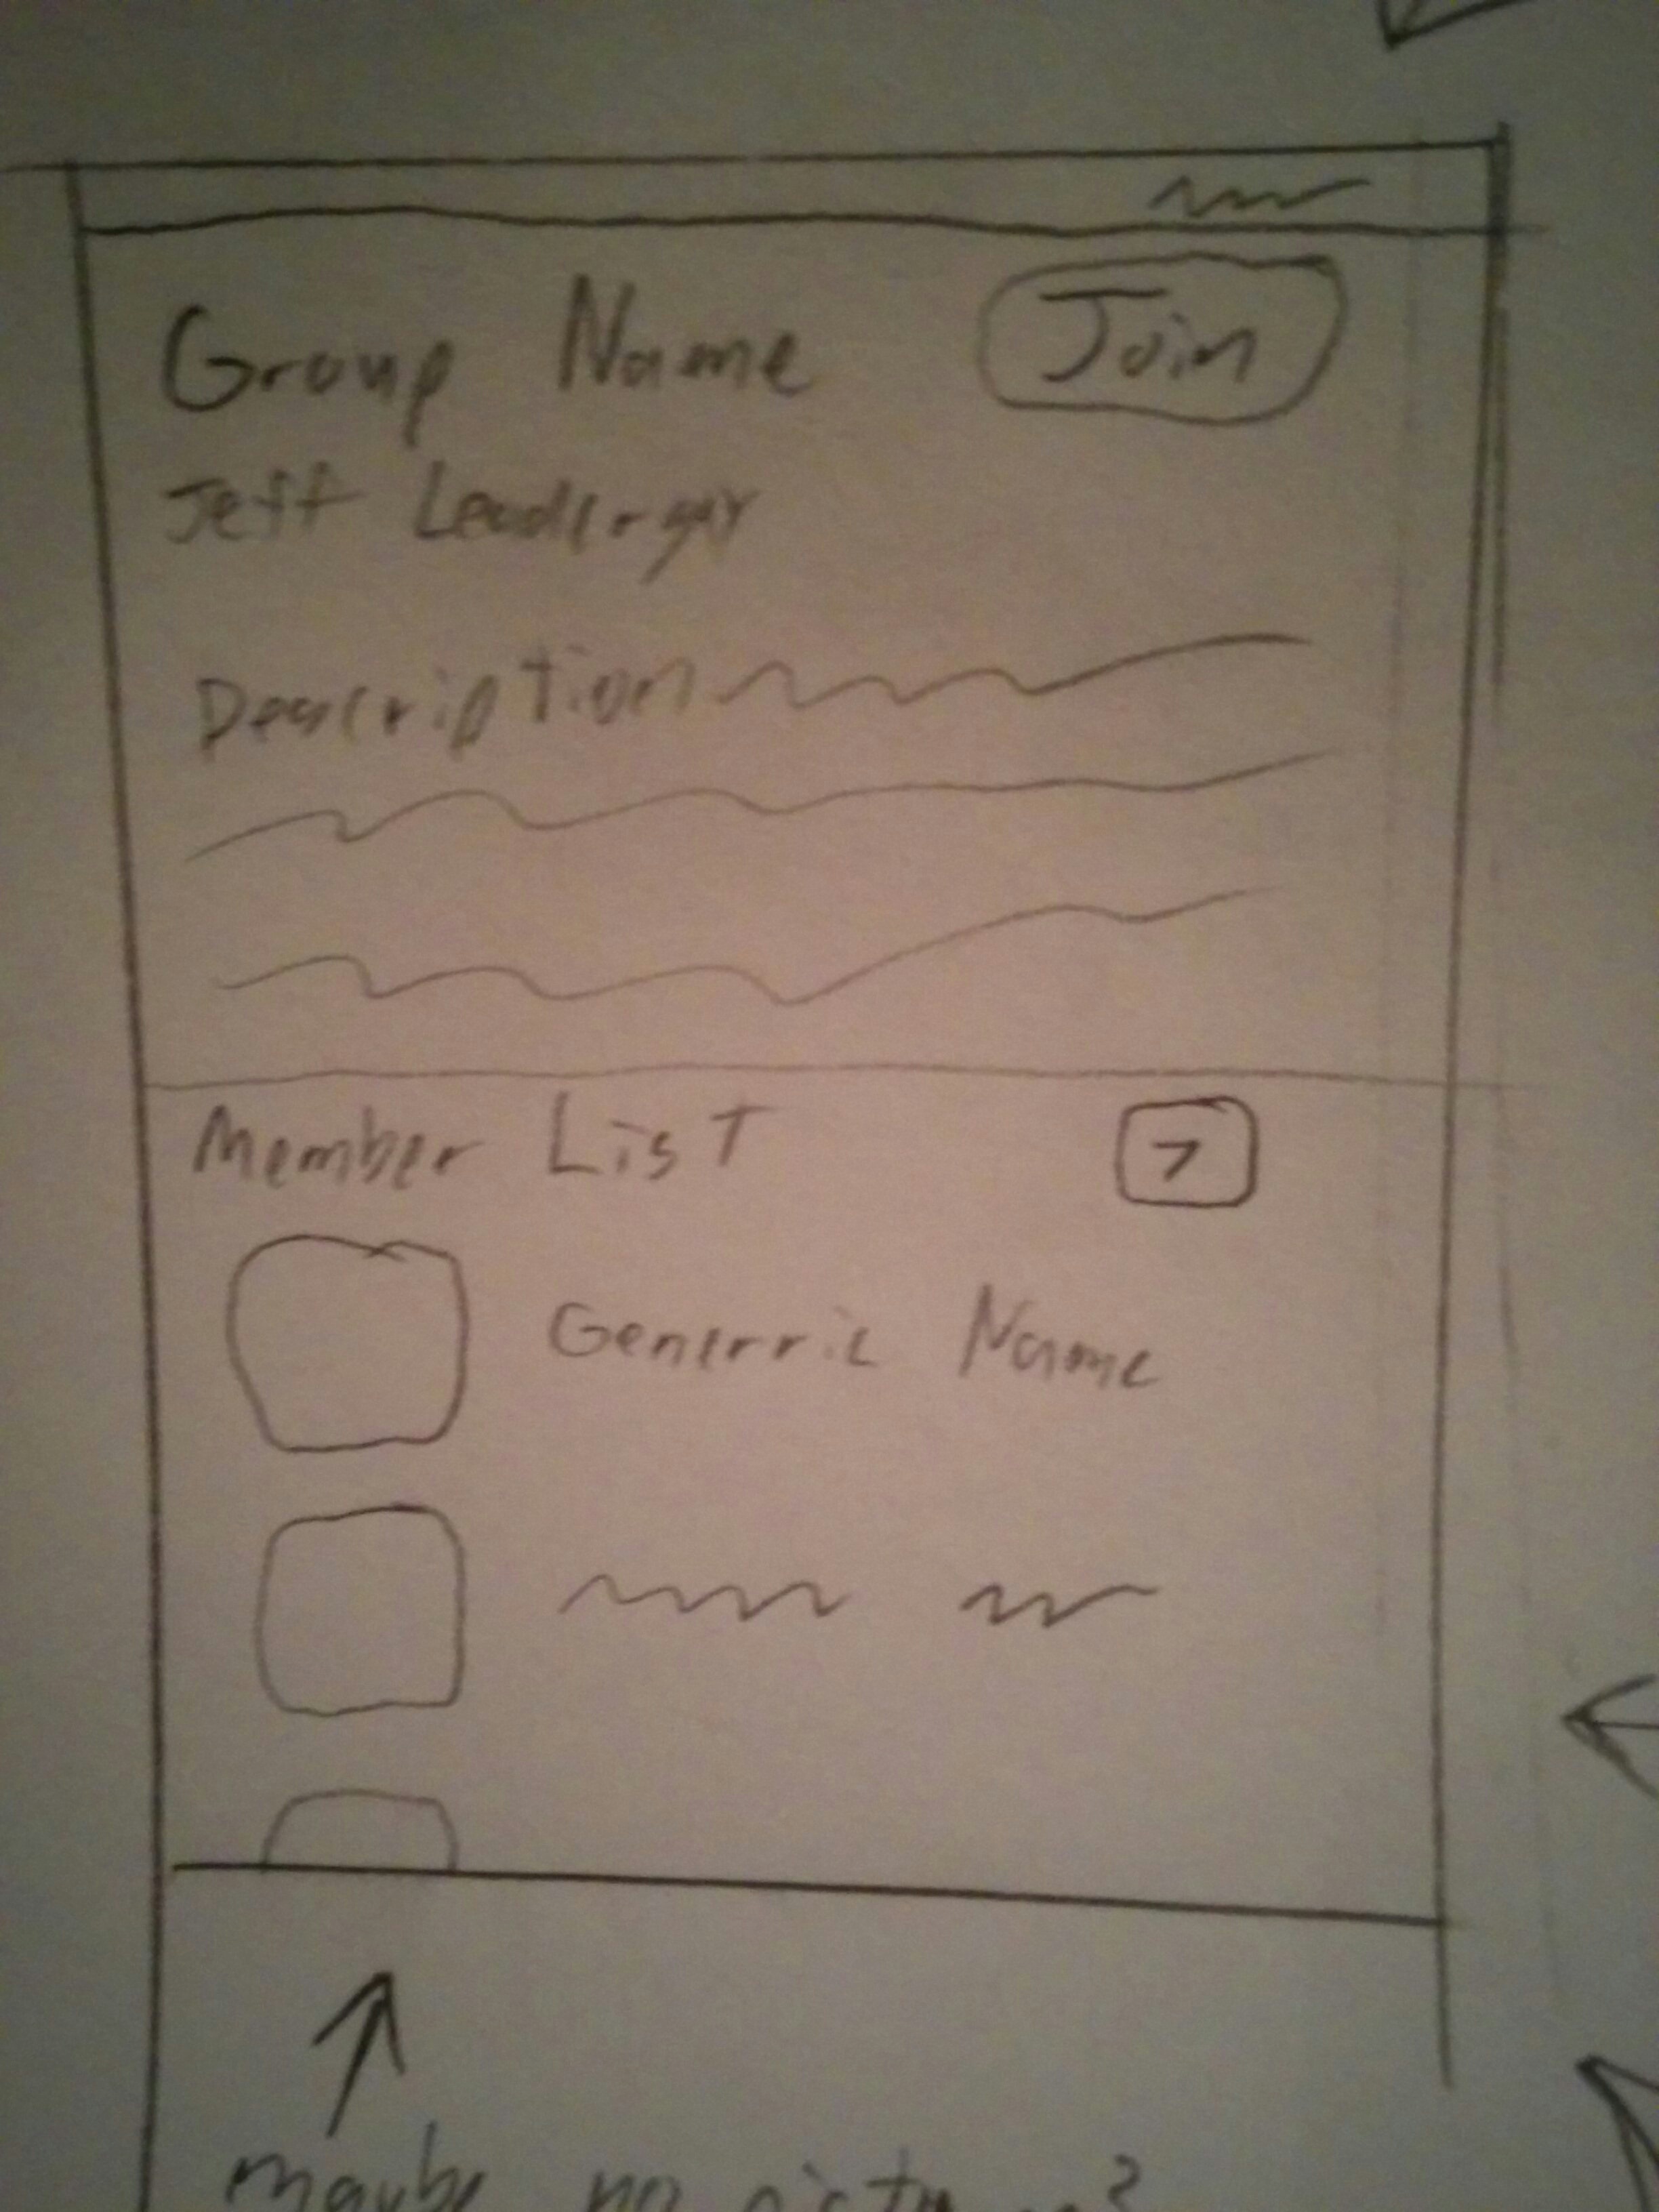 Group Name Join
Jeff Leaderguy
Description
Member List >
Generric Name
maybe no picture?